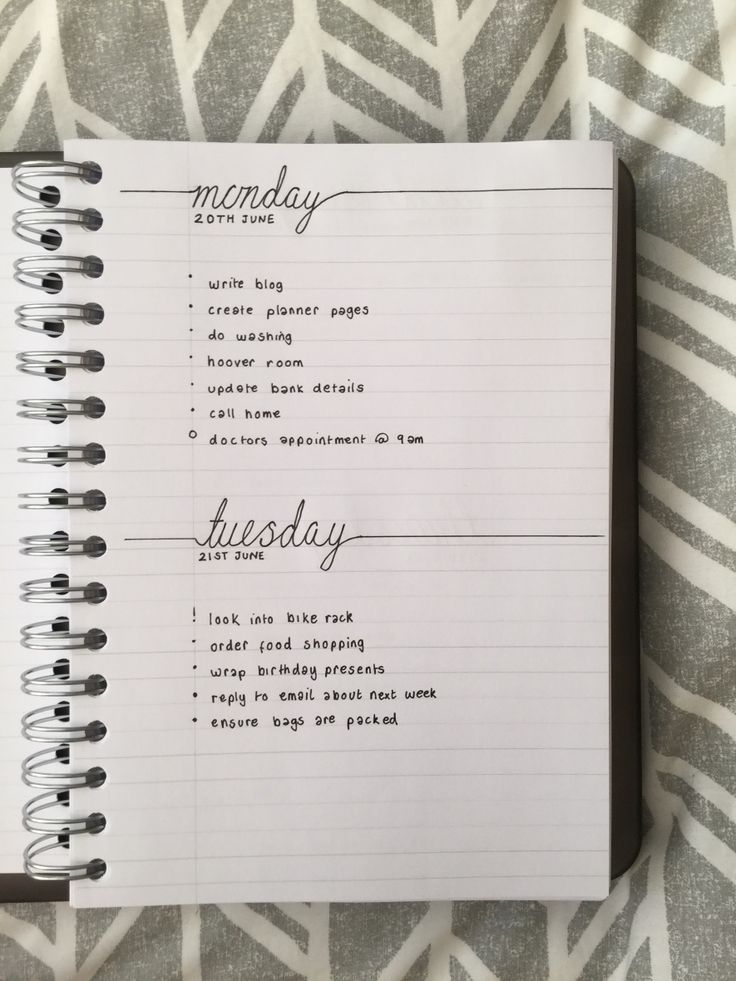 monday
20TH JUNE
• write blog
• create planner pages
• do washing
• hoover room
• update bank details
• call home
o doctors appointment @ 9am
tuesday
21ST JUNE
! look into bike rack
- order food shopping
• wrap birthday presents
• reply to email about next week
• ensure bags are packed